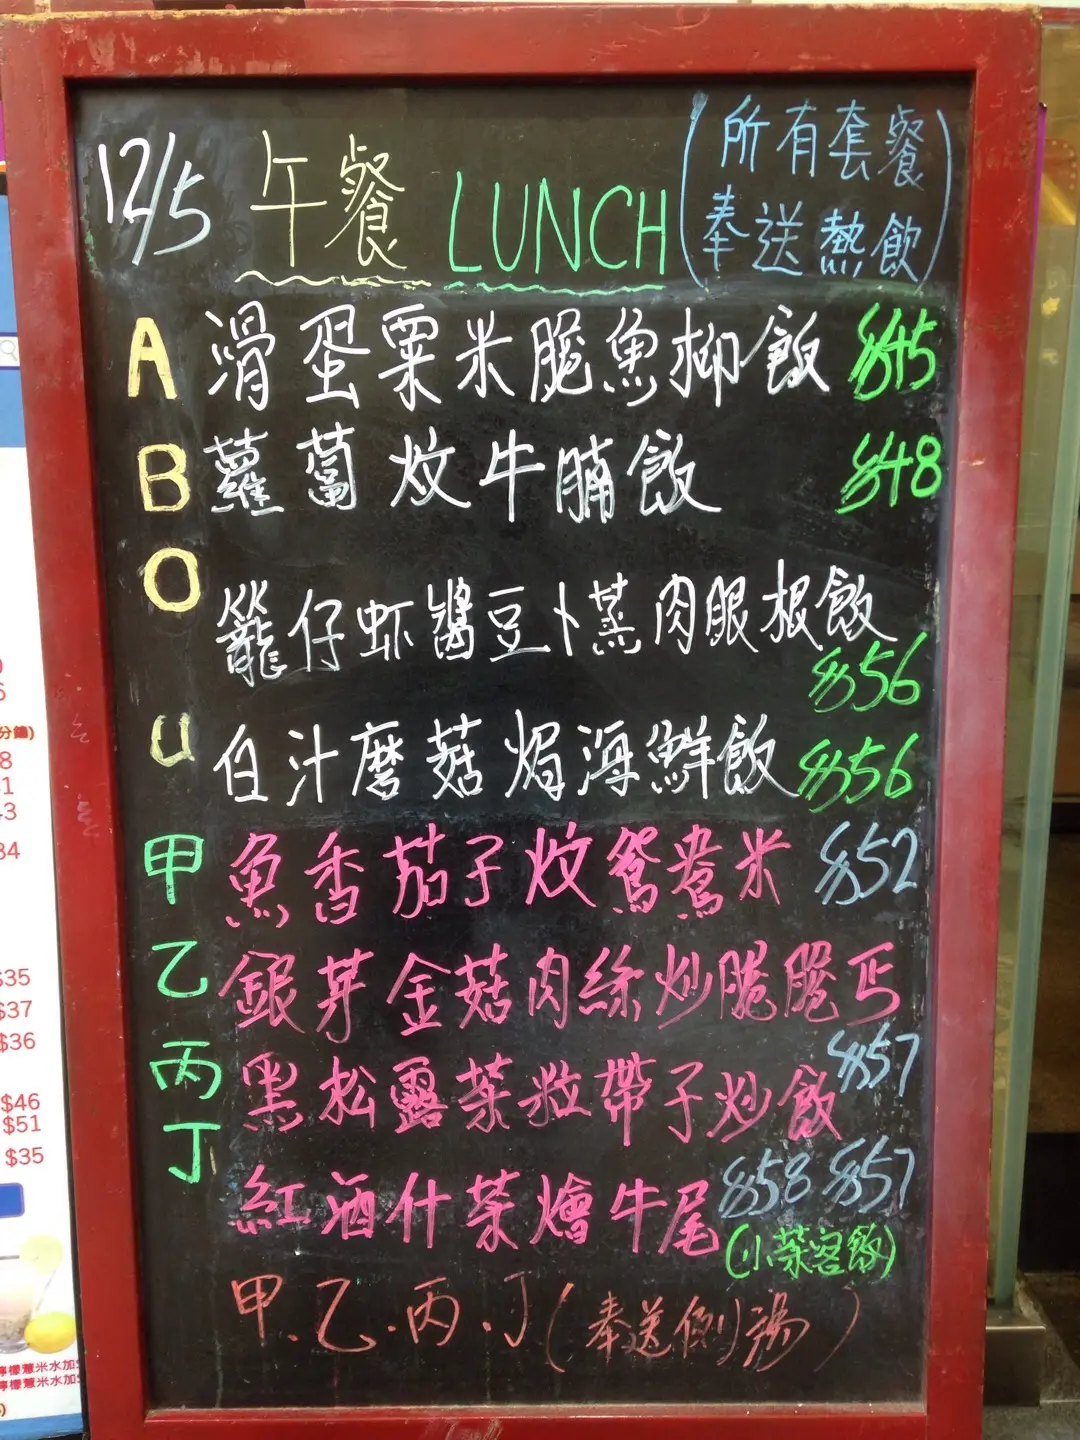 12/5 午餐 LUNCH (所有套餐
奉送熱飲)
A 滑蛋粟米脆魚柳飯 $45
B 蘿蔔炆牛腩飯 $48
O 籠仔虾醬豆卜蒸肉眼根飯
$56
U 白汁磨菇焗海鮮飯 $56
甲 魚香茄子炆鴛鴦米 $52
乙 銀芽金菇肉絲炒脆脆丐
$57
丙 黑松露菜粒帶子炒飯
$58 $57
丁 紅酒什菜燴牛尾
(小菜客飯)
甲.乙.丙.丁(奉送例湯)
分鐘)
$35
$37
$36
$46
$51
$35
檸檬薏米水加$
檸檬薏米水加$